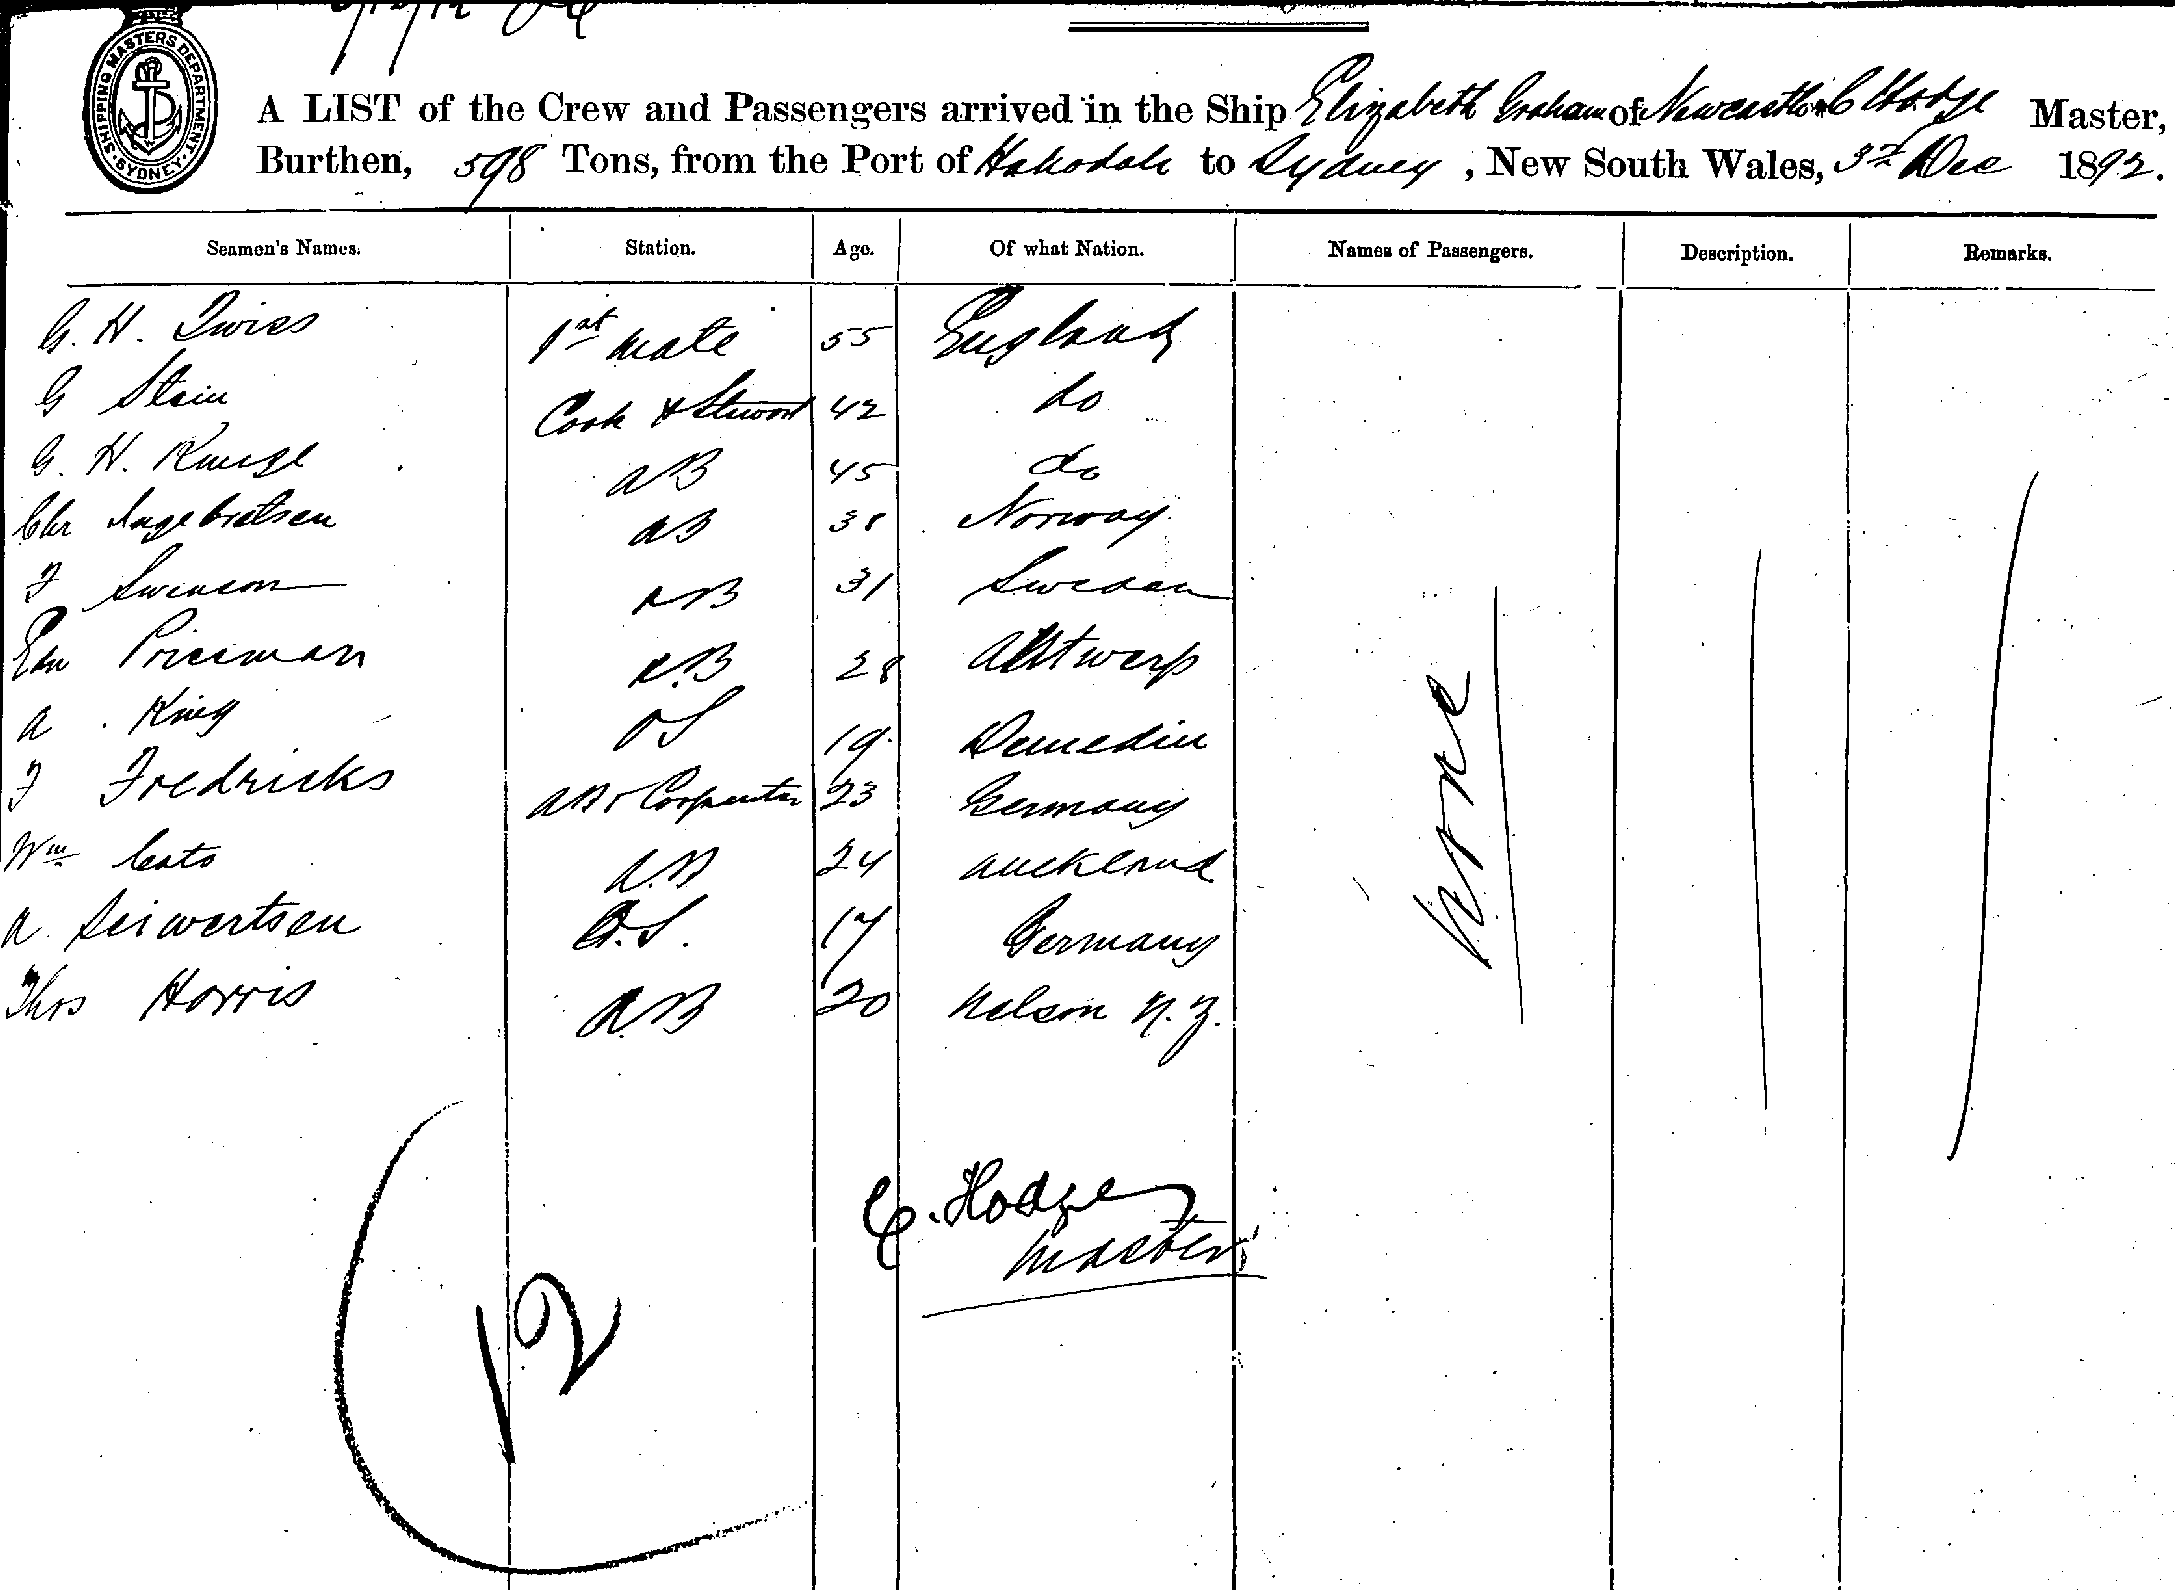 SHIPPING MASTERS DEPARTMENT. SYDNEY.
A LIST of the Crew and Passengers arrived in the Ship Elizabeth Graham of Newcastle C Hodge Master,
Burthen, 598 Tons, from the Port of Hakodate to Sydney, New South Wales, 3rd Dec 1892.
Seamen's Names. Station. Age. Of what Nation. Names of Passengers. Description. Remarks.
G. H. 1st mate 55 England
G Stain Cook & Steward 42 do
G. H. AB 45 do
Chr Ingebretsen AB 38 Norway
F Swenson AB 31 Sweden
Edw Priesman A.B 28 Antwerp
A. King OS 19 Dunedin
F Fredricks AB & Carpenter 23 Germany
Wm Cato A.B 24 Auckland
A. Seiwertsen O.S. 17 Germany
Thos Harris A.B 20 Nelson N.Z.
None
C. Hodge
Master
12